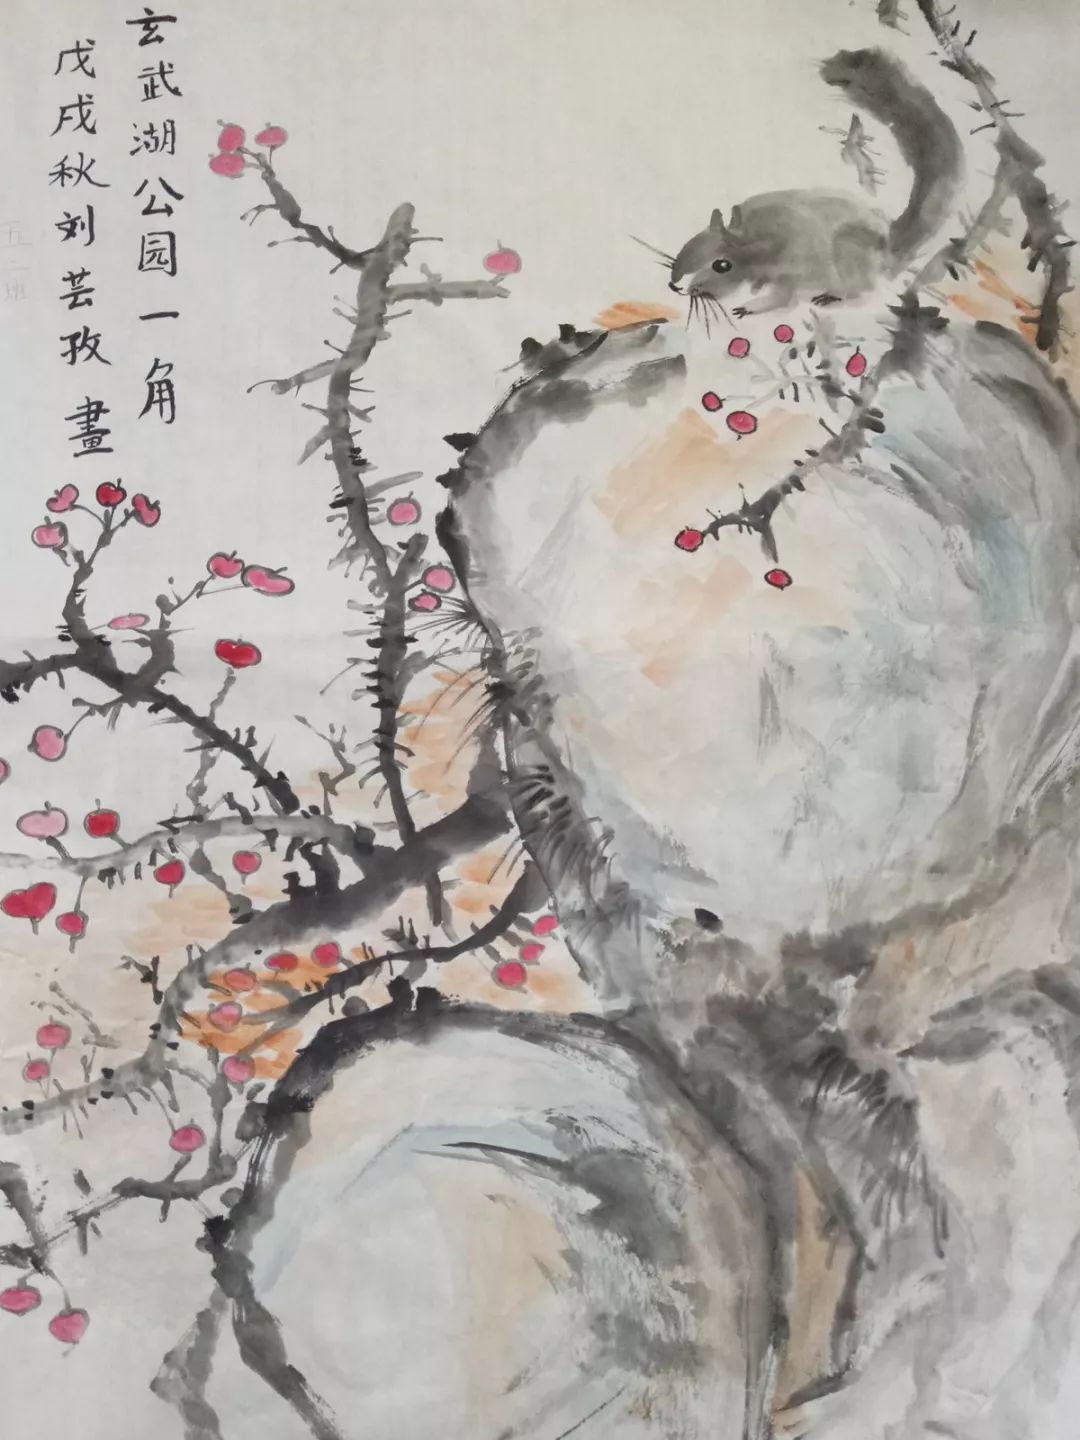 玄武湖公园一角
戊戌秋刘芸孜畫
五二班